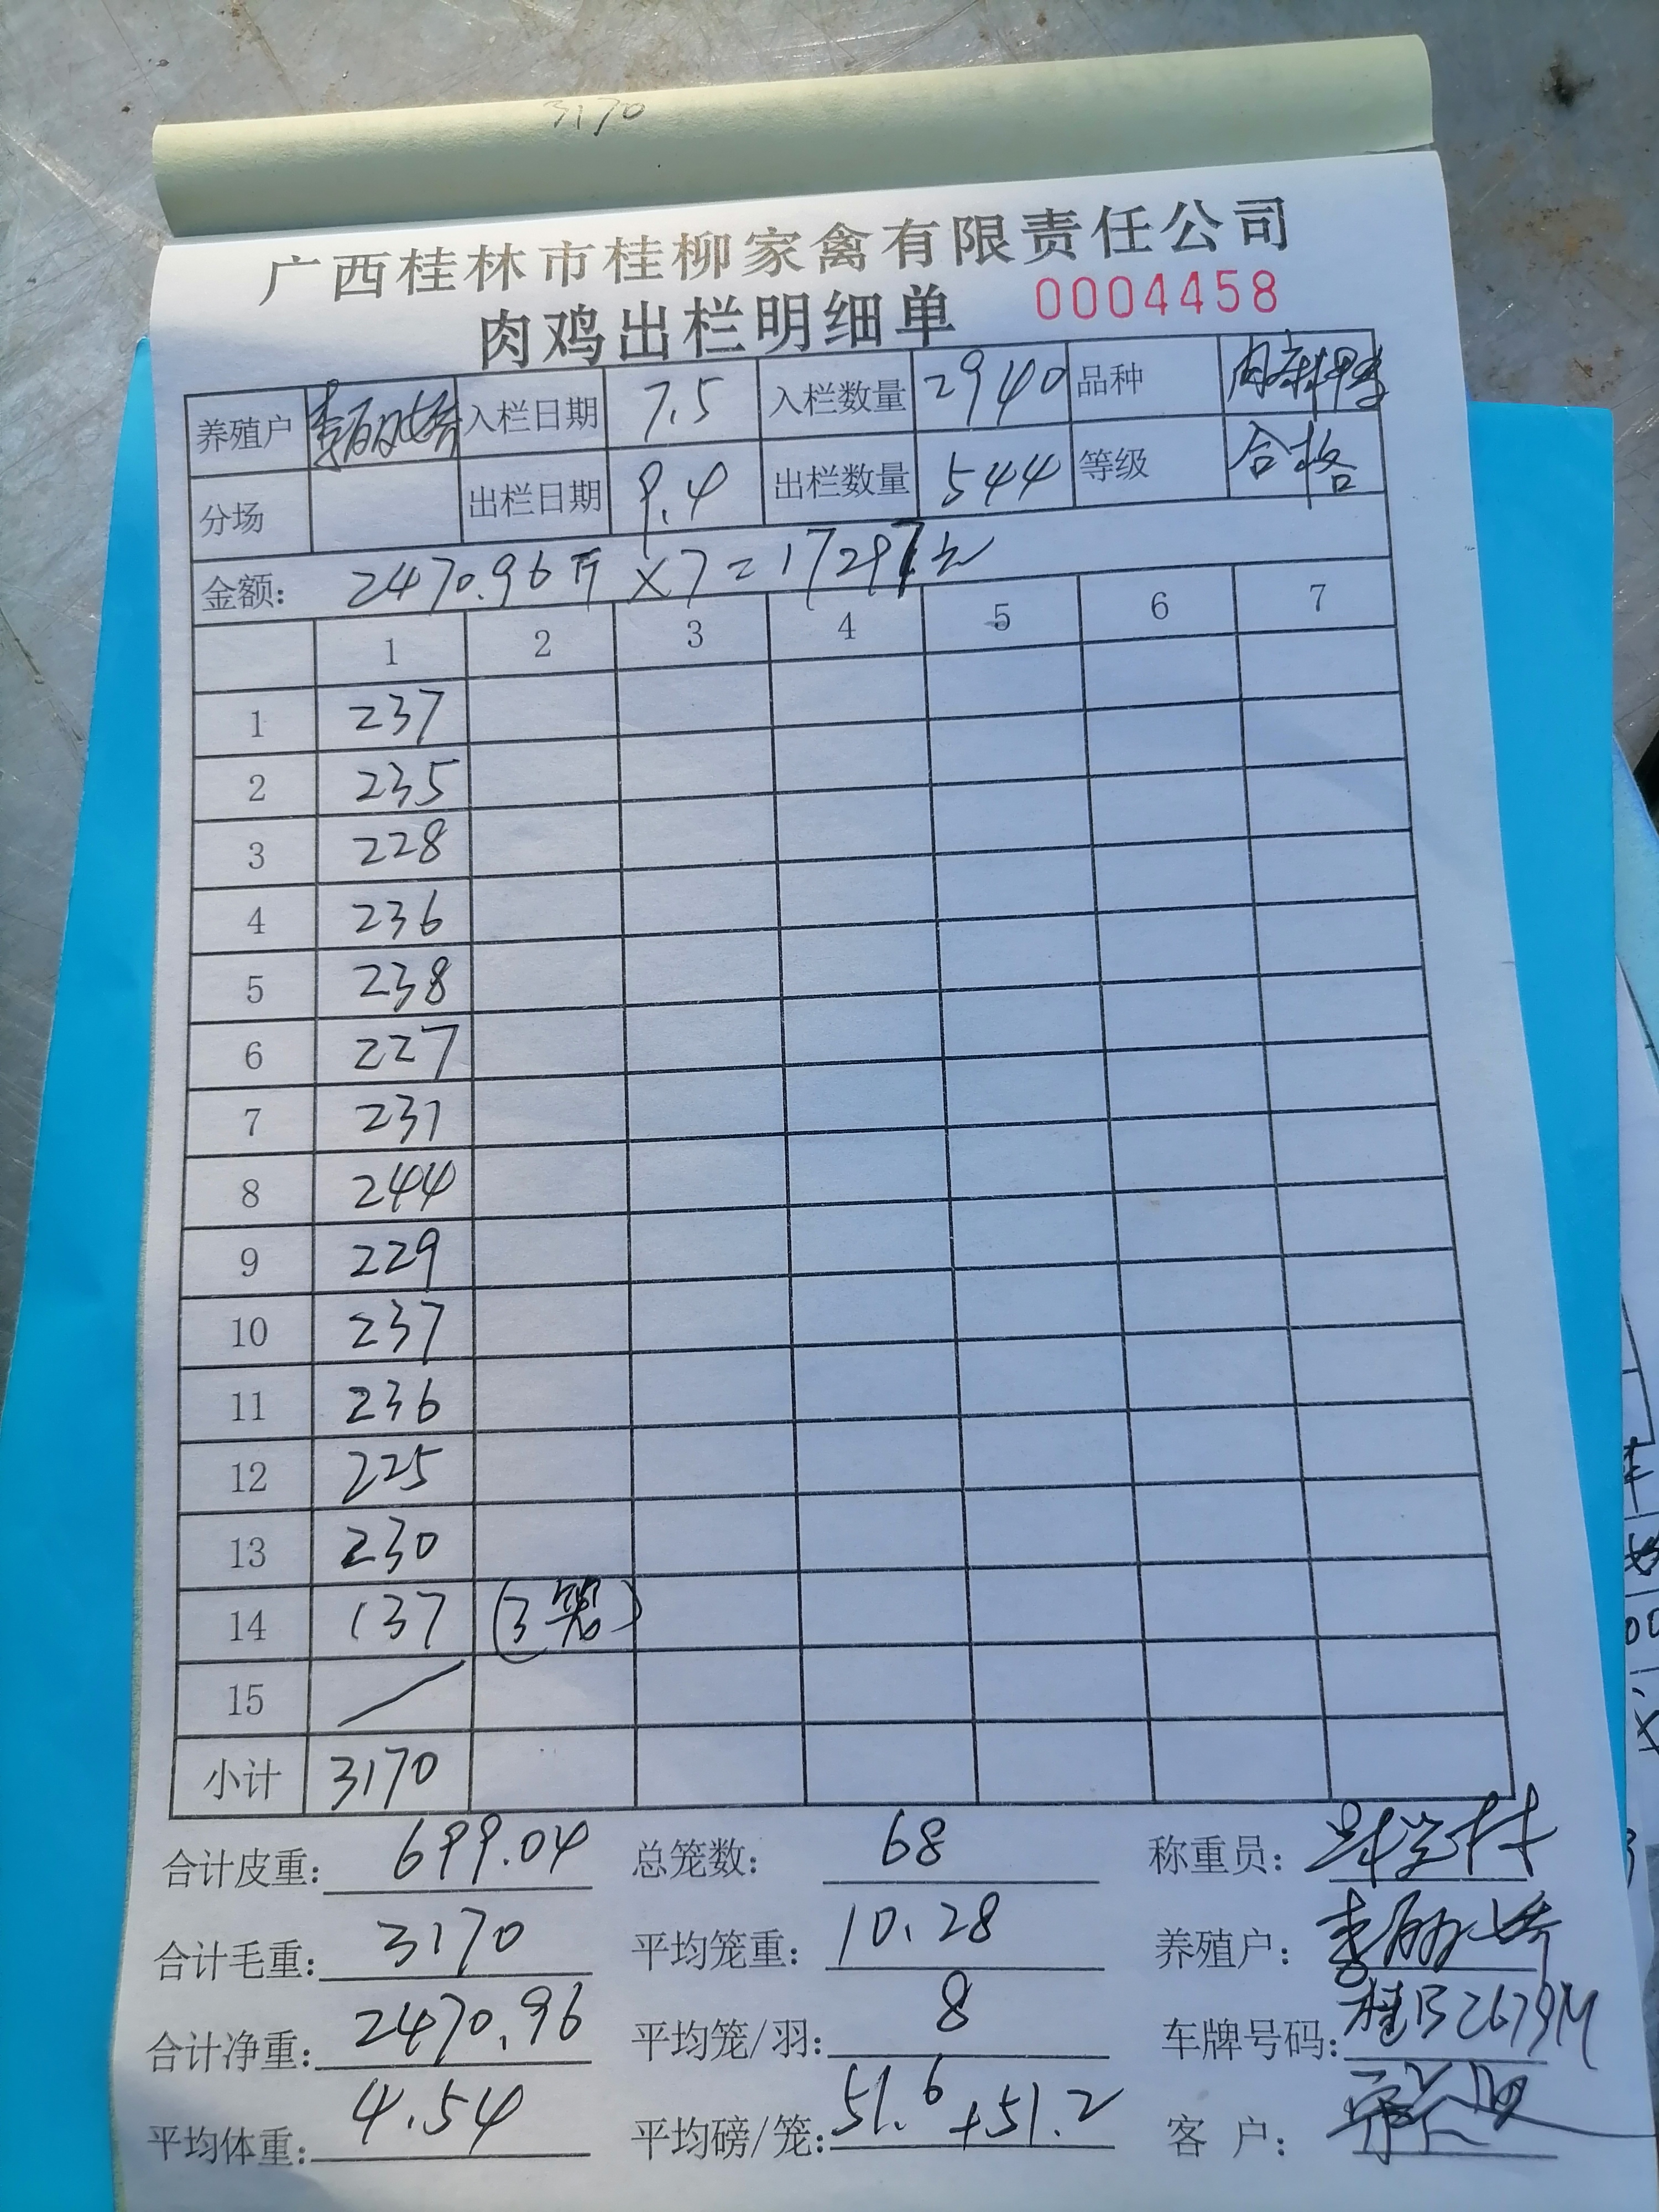 3170
广西桂林市桂柳家禽有限责任公司
肉鸡出栏明细单 0004458
养殖户 李丽娇 入栏日期 7.5 入栏数量 2940 品种
分场 出栏日期 9.4 出栏数量 544 等级 合格
金额: 2470.96斤×7=17297元
1 2 3 4 5 6 7
1 237
2 235
3 228
4 236
5 238
6 227
7 231
8 244
9 229
10 237
11 236
12 225
13 230
14 137 (3笼)
15
小计 3170
合计皮重: 699.04 总笼数: 68 称重员:
合计毛重: 3170 平均笼重: 10.28 养殖户: 李丽娇
合计净重: 2470.96 平均笼/羽: 8 车牌号码: 桂B2679M
平均体重: 4.54 平均磅/笼: 51.6+51.2 客户: